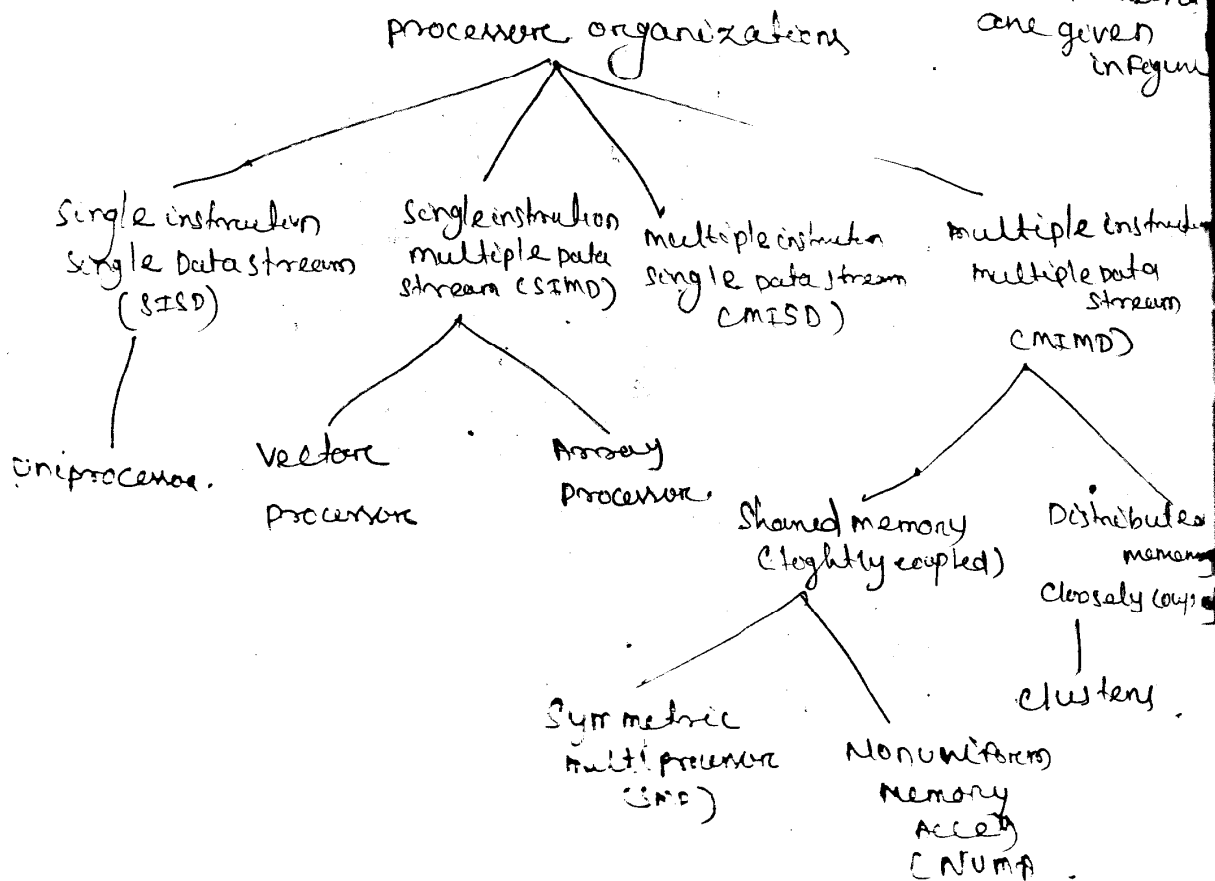 processore organizations
are given
in Figure
Single instruction
Single Data stream
(SISD)
Single instruction
multiple Data
stream (SIMD)
multiple instruction
Single Data stream
(MISD)
multiple instruction
multiple Data
stream
(MIMD)
Uniprocessor.
Vectore
processore
Array
processor.
Shared memory
(tightly coupled)
Distributed
memory
Symmetric
multiprocessore
(SMP)
Nonuniform
Memory
Access
(NUMA
clusters.